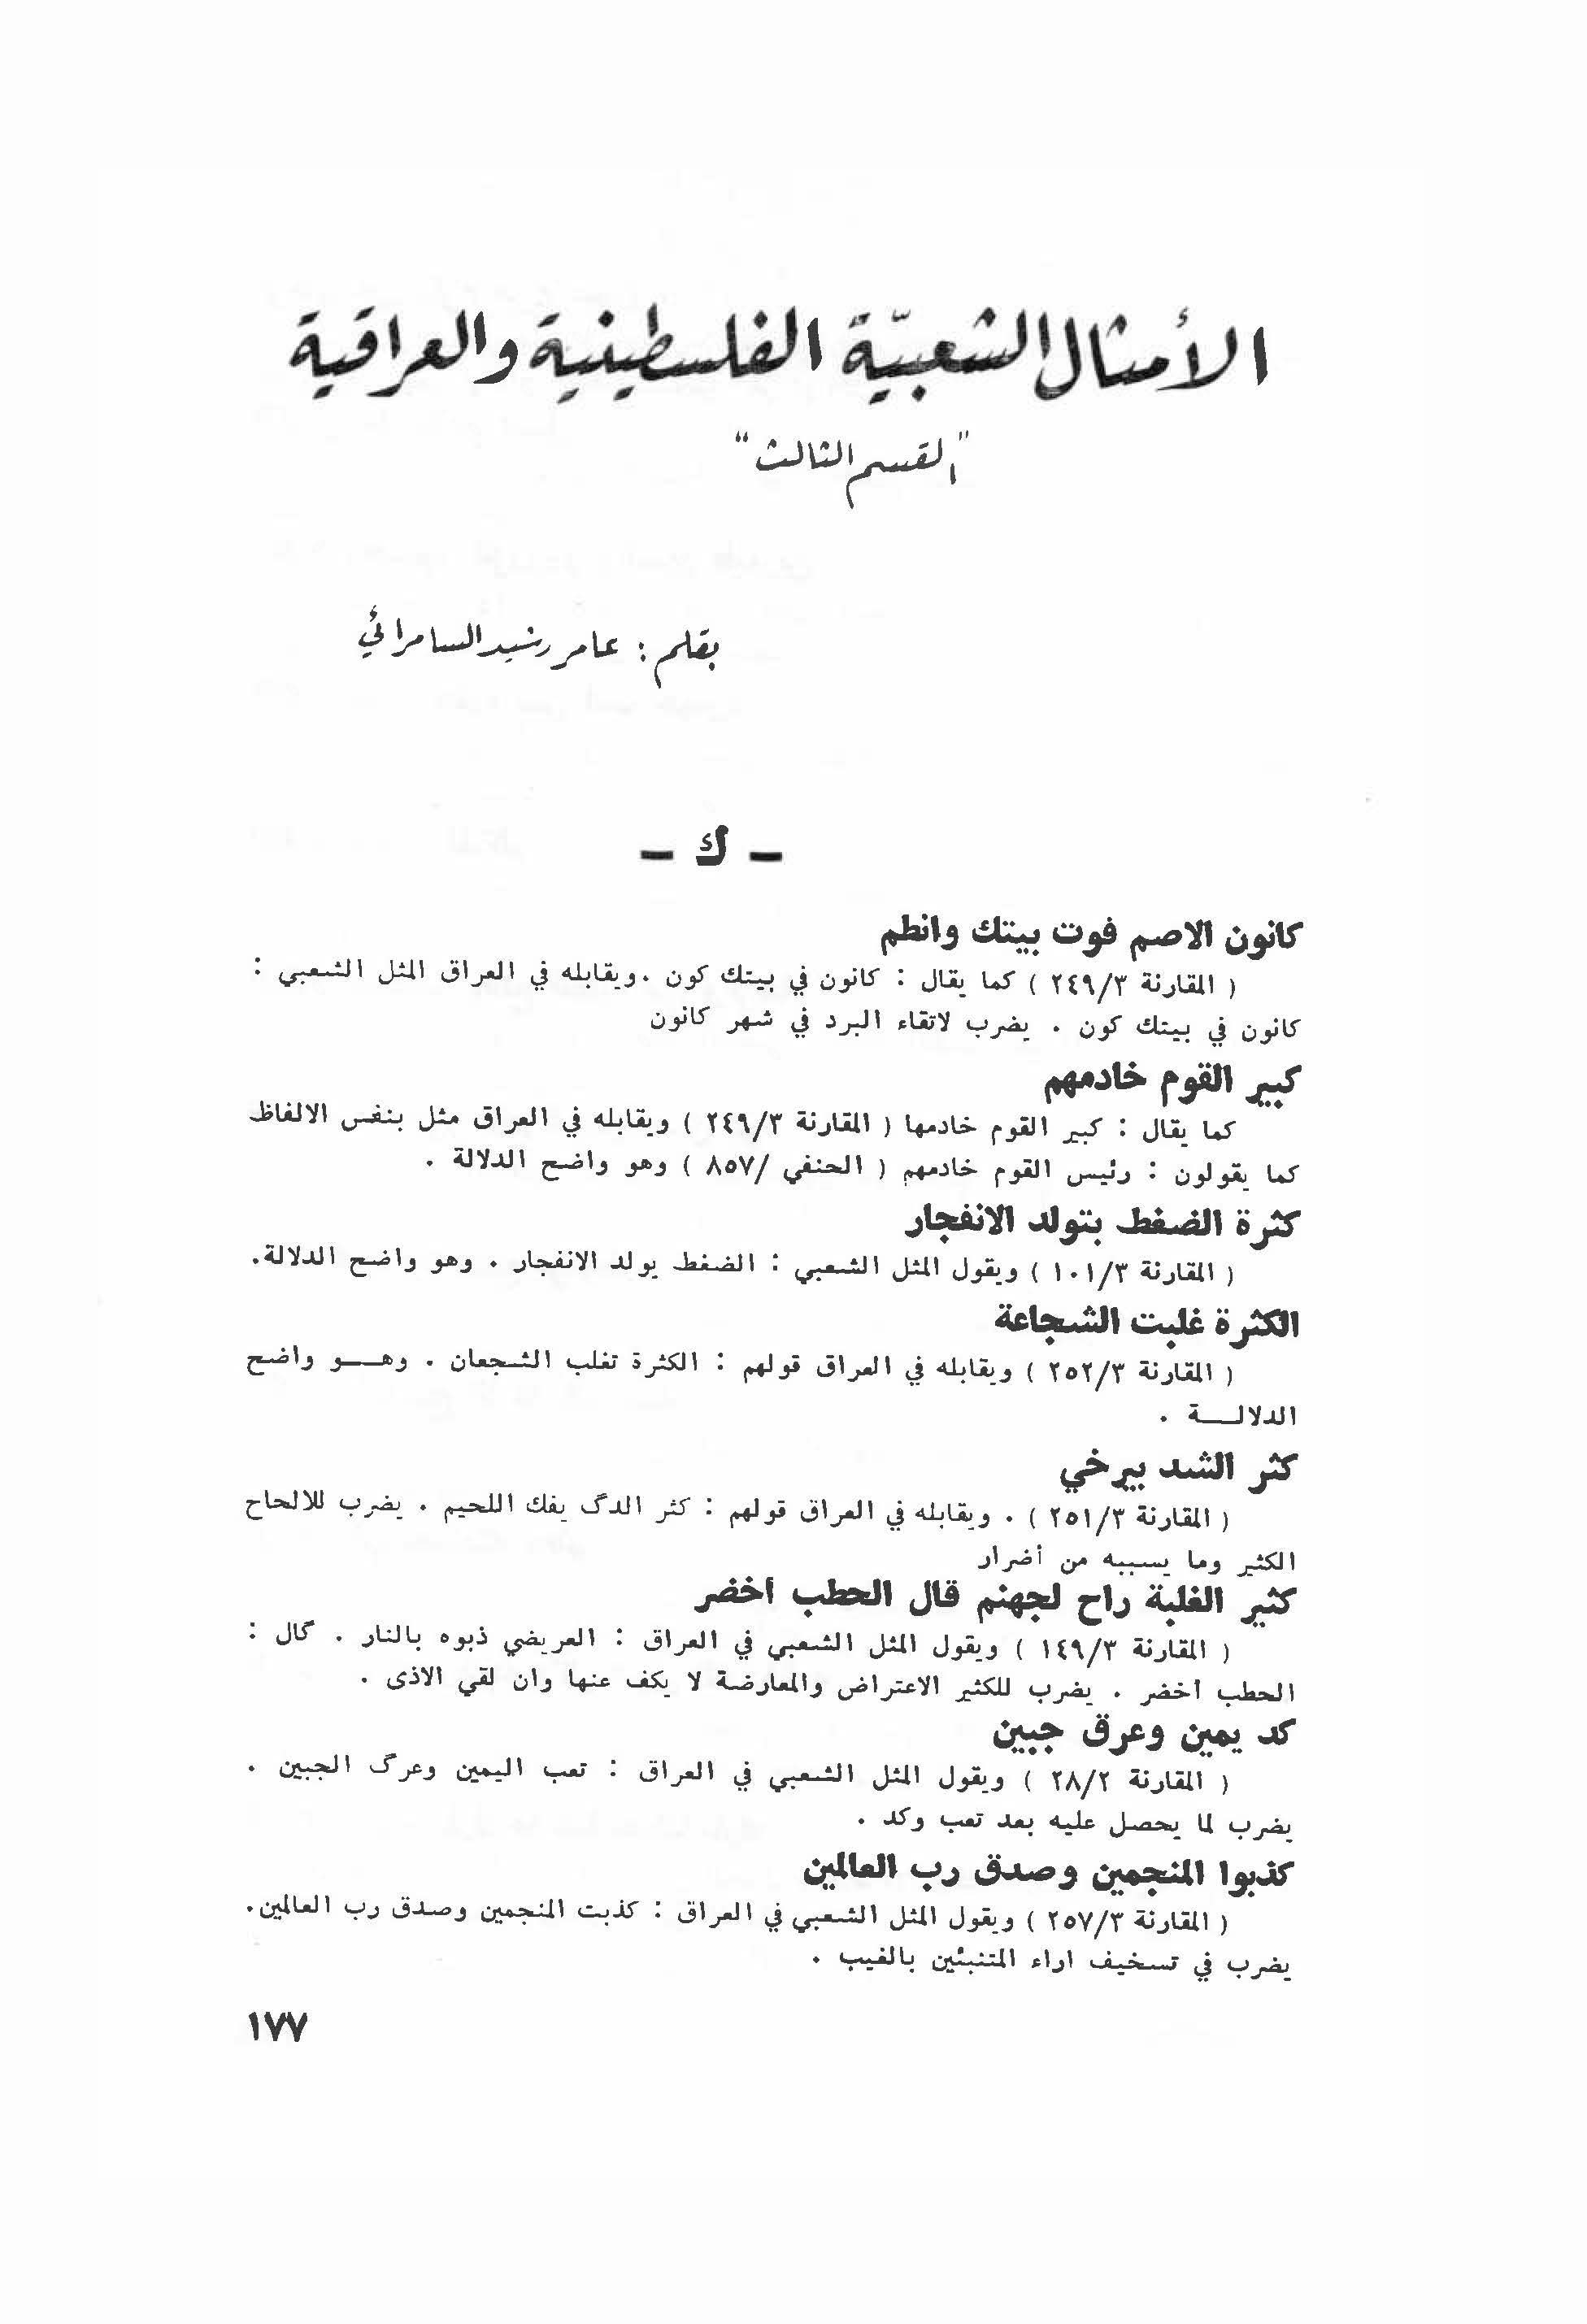 الأمثال الشعبيّة الفلسطينية والعراقية
"القسم الثالث"
بقلم : عامر رشيد السامرائي
- ك -
كانون الاصم فوت بيتك وانطم
( المقارنة ٢٤٩/٣ ) كما يقال : كانون في بيتك كون .ويقابله في العراق المثل الشعبي :
كانون في بيتك كون . يضرب لاتقاء البرد في شهر كانون
كبير القوم خادمهم
كما يقال : كبير القوم خادمها ( المقارنة ٢٤٩/٣ ) ويقابله في العراق مثل بنفس الالفاظ
كما يقولون : رئيس القوم خادمهم ( الحنفي /٨٥٧ ) وهو واضح الدلالة .
كثرة الضغط بتولد الانفجار
( المقارنة ١٠١/٣ ) ويقول المثل الشعبي : الضغط يولد الانفجار . وهو واضح الدلالة.
الكثرة غلبت الشجاعة
( المقارنة ٢٥٢/٣ ) ويقابله في العراق قولهم : الكثرة تغلب الشجعان . وهـــو واضح
الدلالـــة .
كثر الشد بيرخي
( المقارنة ٢٥١/٣ ) . ويقابله في العراق قولهم : كثر الدگ يفك اللحيم . يضرب للالحاح
الكثير وما يسببه من أضرار
كثير الغلبة راح لجهنم قال الحطب أخضر
( المقارنة ١٤٩/٣ ) ويقول المثل الشعبي في العراق : العريضي ذبوه بالنار . گال :
الحطب أخضر . يضرب للكثير الاعتراض والمعارضة لا يكف عنها وان لقي الاذى .
كد يمين وعرق جبين
( المقارنة ٢٨/٢ ) ويقول المثل الشعبي في العراق : تعب اليمين وعرگ الجبين .
يضرب لما يحصل عليه بعد تعب وكد .
كذبوا المنجمين وصدق رب العالمين
( المقارنة ٢٥٧/٣ ) ويقول المثل الشعبي في العراق : كذبت المنجمين وصدق رب العالمين.
يضرب في تسخيف اراء المتنبئين بالغيب .
١٧٧